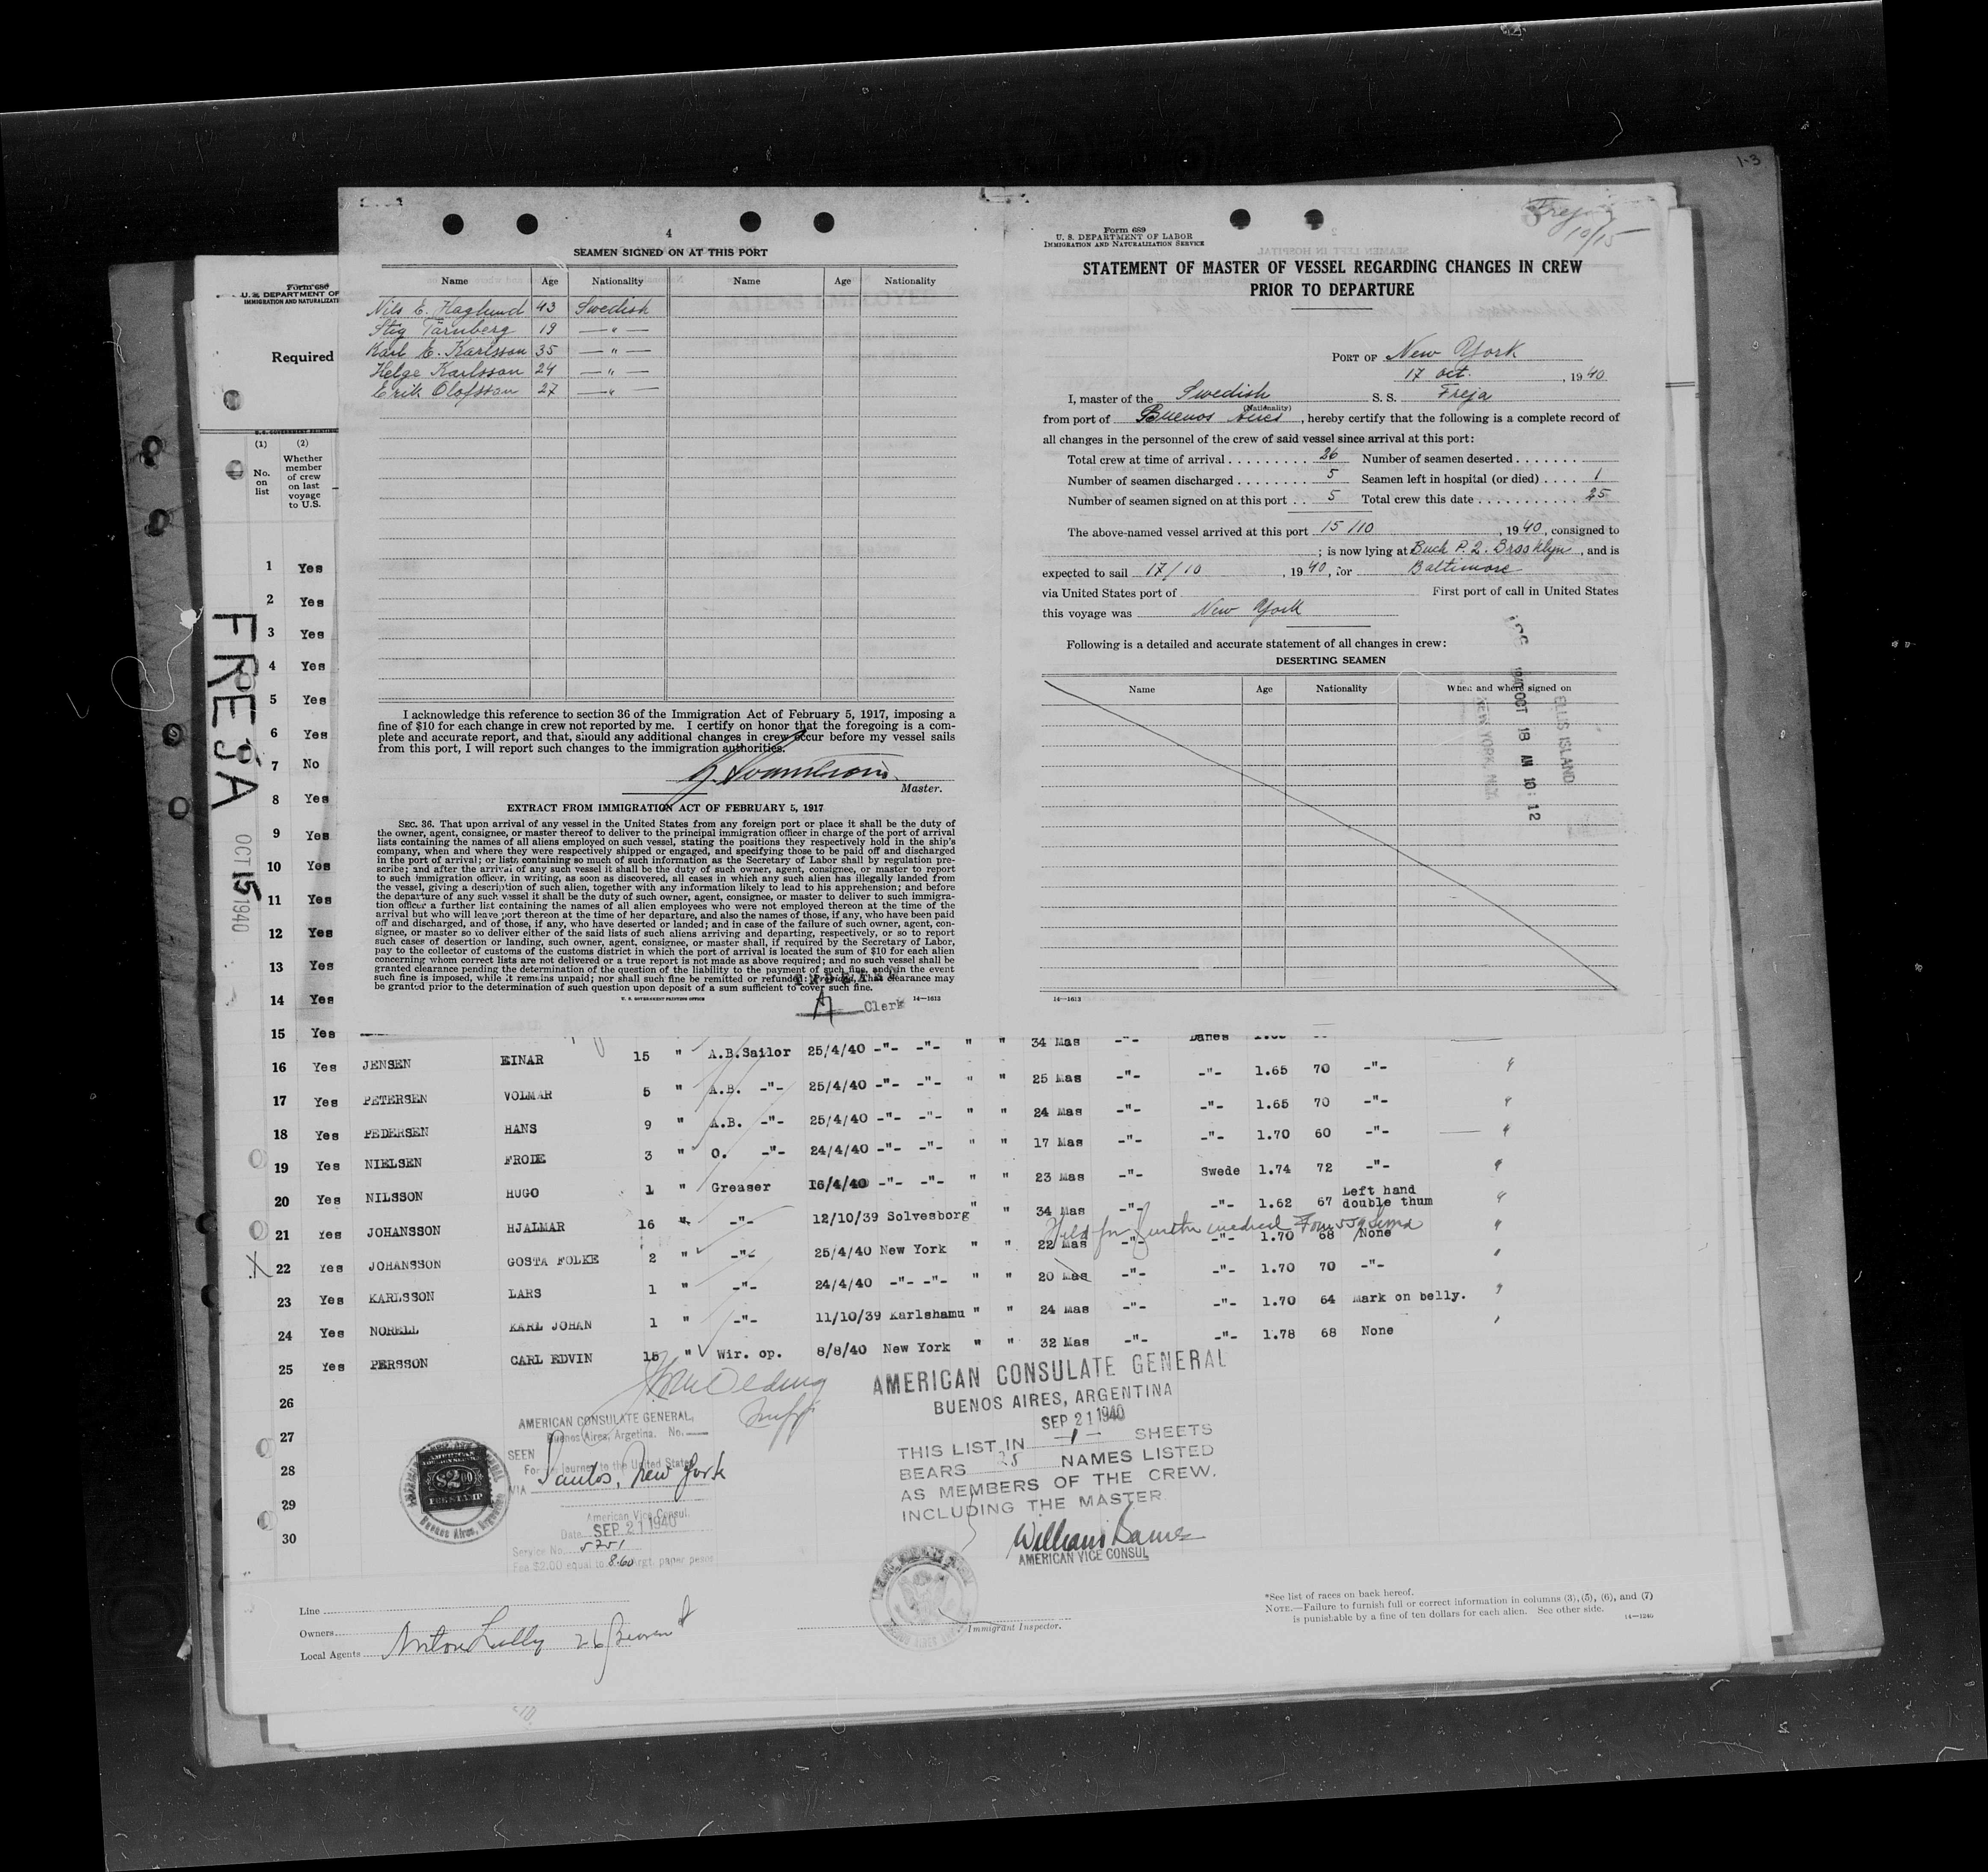 1-3
Freja
10/15
4
SEAMEN SIGNED ON AT THIS PORT
Name Age Nationality Name Age Nationality
Nils E. Haglund 43 Swedish
Stig Tärnberg 19 — " —
Karl E. Karlsson 35 — " —
Helge Karlsson 24 — " —
Erik Olofsson 27 — " —
I acknowledge this reference to section 36 of the Immigration Act of February 5, 1917, imposing a
fine of $10 for each change in crew not reported by me. I certify on honor that the foregoing is a com-
plete and accurate report, and that, should any additional changes in crew occur before my vessel sails
from this port, I will report such changes to the immigration authorities.
Master.
EXTRACT FROM IMMIGRATION ACT OF FEBRUARY 5, 1917
SEC. 36. That upon arrival of any vessel in the United States from any foreign port or place it shall be the duty of
the owner, agent, consignee, or master thereof to deliver to the principal immigration officer in charge of the port of arrival
lists containing the names of all aliens employed on such vessel, stating the positions they respectively hold in the ship's
company, when and where they were respectively shipped or engaged, and specifying those to be paid off and discharged
in the port of arrival; or lists containing so much of such information as the Secretary of Labor shall by regulation pre-
scribe; and after the arrival of any such vessel it shall be the duty of such owner, agent, consignee, or master to report
to such immigration officer, in writing, as soon as discovered, all cases in which any such alien has illegally landed from
the vessel, giving a description of such alien, together with any information likely to lead to his apprehension; and before
the departure of any such vessel it shall be the duty of such owner, agent, consignee, or master to deliver to such immigra-
tion officer a further list containing the names of all alien employees who were not employed thereon at the time of the
arrival but who will leave port thereon at the time of her departure, and also the names of those, if any, who have been paid
off and discharged, and of those, if any, who have deserted or landed; and in case of the failure of such owner, agent, con-
signee, or master so to deliver either of the said lists of such aliens arriving and departing, respectively, or so to report
such cases of desertion or landing, such owner, agent, consignee, or master shall, if required by the Secretary of Labor,
pay to the collector of customs of the customs district in which the port of arrival is located the sum of $10 for each alien
concerning whom correct lists are not delivered or a true report is not made as above required; and no such vessel shall be
granted clearance pending the determination of the question of the liability to the payment of such fine, and in the event
such fine is imposed, while it remains unpaid; nor shall such fine be remitted or refunded: Provided, That clearance may
be granted prior to the determination of such question upon deposit of a sum sufficient to cover such fine.
U. S. GOVERNMENT PRINTING OFFICE 14—1613
INDEXED
Clerk
Form 689
U. S. DEPARTMENT OF LABOR
IMMIGRATION AND NATURALIZATION SERVICE
STATEMENT OF MASTER OF VESSEL REGARDING CHANGES IN CREW
PRIOR TO DEPARTURE
PORT OF New York
17 Oct. , 1940
I, master of the Swedish S. S. Freja
(Nationality)
from port of Buenos Aires , hereby certify that the following is a complete record of
all changes in the personnel of the crew of said vessel since arrival at this port:
Total crew at time of arrival 26 Number of seamen deserted
Number of seamen discharged 5 Seamen left in hospital (or died) 1
Number of seamen signed on at this port 5 Total crew this date 25
The above-named vessel arrived at this port 15/10 , 1940, consigned to
; is now lying at Buch P. 2. Brooklyn , and is
expected to sail 17/10 , 1940, for Baltimore
via United States port of First port of call in United States
this voyage was New York
Following is a detailed and accurate statement of all changes in crew:
DESERTING SEAMEN
Name Age Nationality When and where signed on
1940 OCT 18 AM 10: 12
ELLIS ISLAND
NEW YORK, N.Y.
14—1613
Form 680
U. S. DEPARTMENT OF
IMMIGRATION AND NATURALIZATI
Required
(1) (2)
No. on list
Whether member of crew on last voyage to U.S.
FREJA
OCT 15 1940
1 Yes
2 Yes
3 Yes
4 Yes
5 Yes
6 Yes
7 No
8 Yes
9 Yes
10 Yes
11 Yes
12 Yes
13 Yes
14 Yes
15 Yes
16 Yes JENSEN EINAR 15 " A.B.Sailor 25/4/40 -"- -"- " " 34 Mas -"- Danes
17 Yes PETERSEN VOLMAR 5 " A.B. -"- 25/4/40 -"- -"- " " 25 Mas -"- -"- 1.65 70 -"-
18 Yes PEDERSEN HANS 9 " A.B. -"- 25/4/40 -"- -"- " " 24 Mas -"- -"- 1.65 70 -"-
19 Yes NIELSEN FRODE 3 " O. -"- 24/4/40 -"- -"- " " 17 Mas -"- -"- 1.70 60 -"-
20 Yes NILSSON HUGO 1 " Greaser 16/4/40 -"- -"- " " 23 Mas -"- Swede 1.74 72 -"-
21 Yes JOHANSSON HJALMAR 16 " -"- 12/10/39 Solvesborg " " 34 Mas -"- 1.62 67 Left hand double thum
Held for further medical
22 Yes JOHANSSON GOSTA FOLKE 2 " -"- 25/4/40 New York " " 22 Mas -"- -"- 1.70 68 None
23 Yes KARLSSON LARS 1 " -"- 24/4/40 -"- -"- " " 20 Mas -"- -"- 1.70 70 -"-
24 Yes NORELL KARL JOHAN 1 " -"- 11/10/39 Karlshamu " " 24 Mas -"- -"- 1.70 64 Mark on belly.
25 Yes PERSSON CARL EDVIN 15 " Wir. op. 8/8/40 New York " " 32 Mas -"- -"- 1.78 68 None
26
27
28
29
30
AMERICAN CONSULATE GENERAL,
Buenos Aires, Argetina. No.
SEEN
For the journey to the United States
VIA Santos, New York
American Vice Consul.
Date SEP 21 1940
Service No. 5751
Fee $2.00 equal to 8.60 Argt. paper pesos
AMERICAN
$2.00
FEE STAMP
Buenos Aires, Argentina
AMERICAN CONSULATE GENERAL
BUENOS AIRES, ARGENTINA
SEP 21 1940
THIS LIST IN -1- SHEETS
BEARS 25 NAMES LISTED
AS MEMBERS OF THE CREW.
INCLUDING THE MASTER
William Barnes
AMERICAN VICE CONSUL
Line
Owners
Local Agents
Immigrant Inspector.
*See list of races on back hereof.
NOTE.—Failure to furnish full or correct information in columns (3), (5), (6), and (7)
is punishable by a fine of ten dollars for each alien. See other side.
14—1240